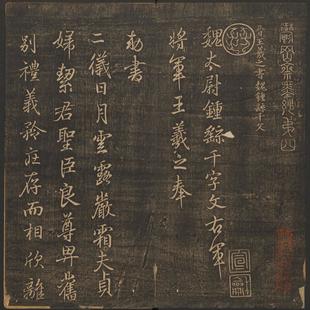 鬱岡齋墨妙第四
晉王羲之書魏鍾繇千文
魏太尉鍾繇千字文右軍
將軍王羲之奉
勅書
二儀日月雲露嚴霜夫貞
婦絜君聖臣良尊卑舊
別禮義矜莊存而相欣離